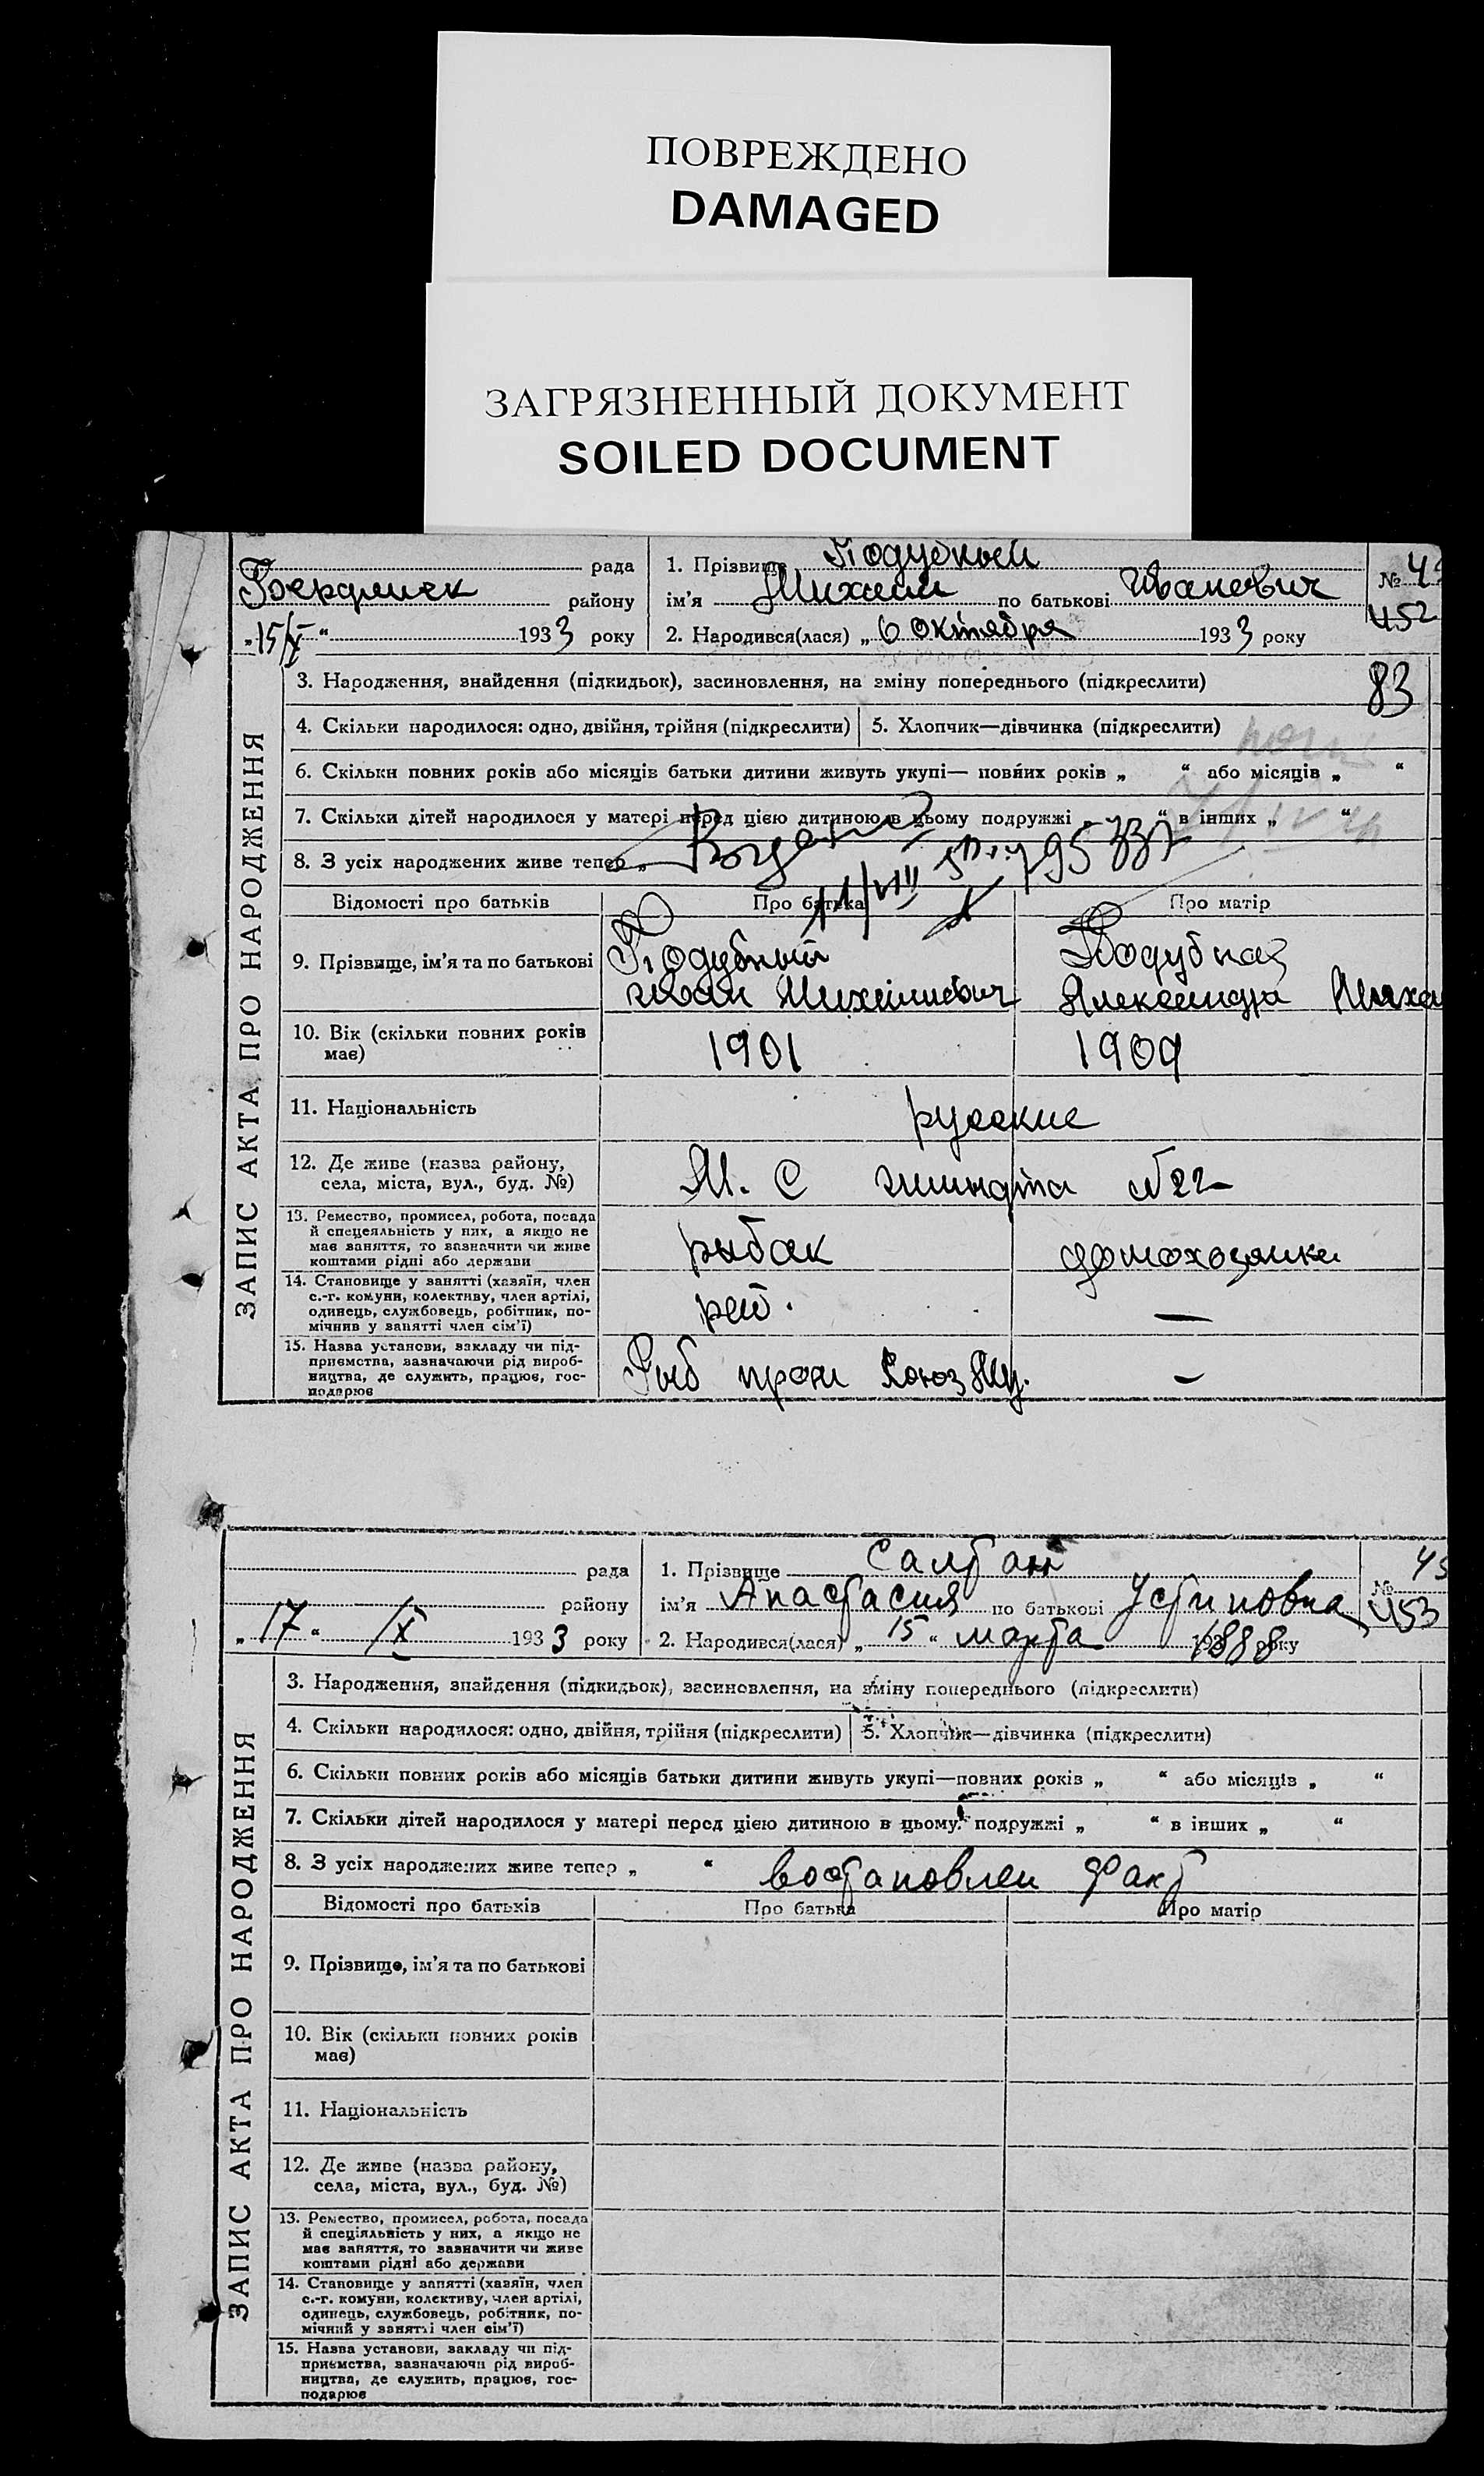 ПОВРЕЖДЕНО
DAMAGED
ЗАГРЯЗНЕННЫЙ ДОКУМЕНТ
SOILED DOCUMENT
рада 1. Прізвище Подубный
Бердянск району ім'я Михаил по батькові Иванович № 452
„15/X“ 1933 року 2. Народився(лася) „6 октября 1933 року
83
ЗАПИС АКТА ПРО НАРОДЖЕННЯ
3. Народження, знайдення (підкидьок), засиновлення, на зміну попереднього (підкреслити)
4. Скільки народилося: одно, двійня, трійня (підкреслити) 5. Хлопчик—дівчинка (підкреслити)
6. Скільки повних років або місяців батьки дитини живуть укупі— повних років „ “ або місяців „ “
7. Скільки дітей народилося у матері перед цією дитиною в цьому подружжі „ “ в інших „ “
8. З усіх народжених живе тепер „
11/VIII
Відомості про батьків Про батька Про матір
9. Прізвище, ім'я та по батькові Подубный Подубная
Иван Михайлович Александра Миха
10. Вік (скільки повних років 1901 1909
має)
11. Національність русские
12. Де живе (назва району,
села, міста, вул., буд. №) М. С №22
13. Ремество, промисел, робота, посада
й спецеяльність у них, а якщо не
має заняття, то зазначити чи живе рыбак домохозяйка
коштами рідні або держави
14. Становище у занятті (хазяїн, член
с.-г. комуни, колективу, член артілі,
одинець, службовець, робітник, по- —
мічнив у занятті член сім'ї)
15. Назва установи, закладу чи під-
приємства, зазначаючи рід вироб-
ництва, де служить, працює, гос- Рыб пром Союз —
подарює
рада 1. Прізвище Салбан
району ім'я Анастасия по батькові Устиновна № 453
„17“ IX 1933 року 2. Народився(лася) „15“ марта 1888 року
ЗАПИС АКТА ПРО НАРОДЖЕННЯ
3. Народження, знайдення (підкидьок), засиновлення, на зміну попереднього (підкреслити)
4. Скільки народилося: одно, двійня, трійня (підкреслити) 5. Хлопчик—дівчинка (підкреслити)
6. Скільки повних років або місяців батьки дитини живуть укупі—повних років „ “ або місяців „ “
7. Скільки дітей народилося у матері перед цією дитиною в цьому подружжі „ “ в інших „ “
8. З усіх народжених живе тепер „ “ востановлен факт
Відомості про батьків Про батька Про матір
9. Прізвище, ім'я та по батькові
10. Вік (скільки повних років
має)
11. Національність
12. Де живе (назва району,
села, міста, вул., буд. №)
13. Ремество, промисел, робота, посада
й спеціяльність у них, а якщо не
має заняття, то зазначити чи живе
коштами рідні або держави
14. Становище у занятті (хазяїн, член
с.-г. комуни, колективу, член артілі,
одинець, службовець, робітник, по-
мічний у занятті член сім'ї)
15. Назва установи, закладу чи під-
приємства, зазначаючи рід вироб-
ництва, де служить, працює, гос-
подарює